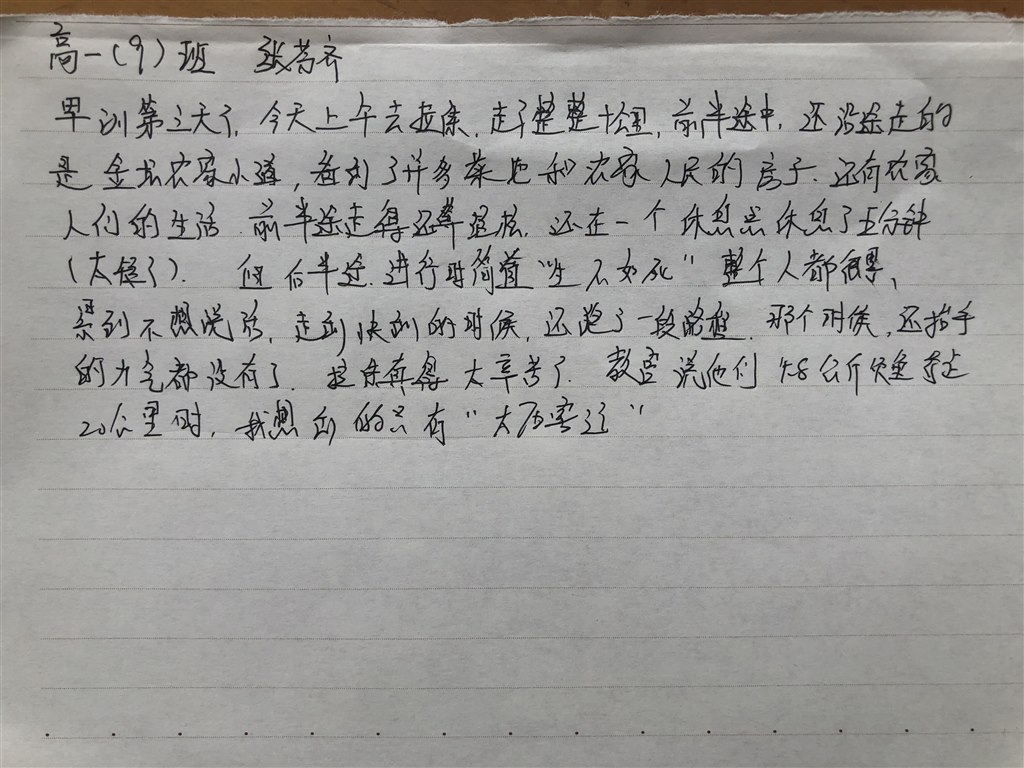 高一(9)班 张芮齐
早训第三天了,今天上午去拉练,走了整整十公里,前半途中,还沿途走的
是金坛农家小道,看到了许多菜地和农家人民的房子.还有农家
人们的生活.前半途走得还算轻松,还在一个休息点休息了五分钟
(太短了).但后半途,进行时简直"生不如死"整个人都很累,
累到不想说话,走到快到的时候,还跑了一段路程.那个时候,还抬手
的力气都没有了.拉练真得太辛苦了.教官说他们 48公斤负重走
20公里时,我想到的只有"太厉害了"